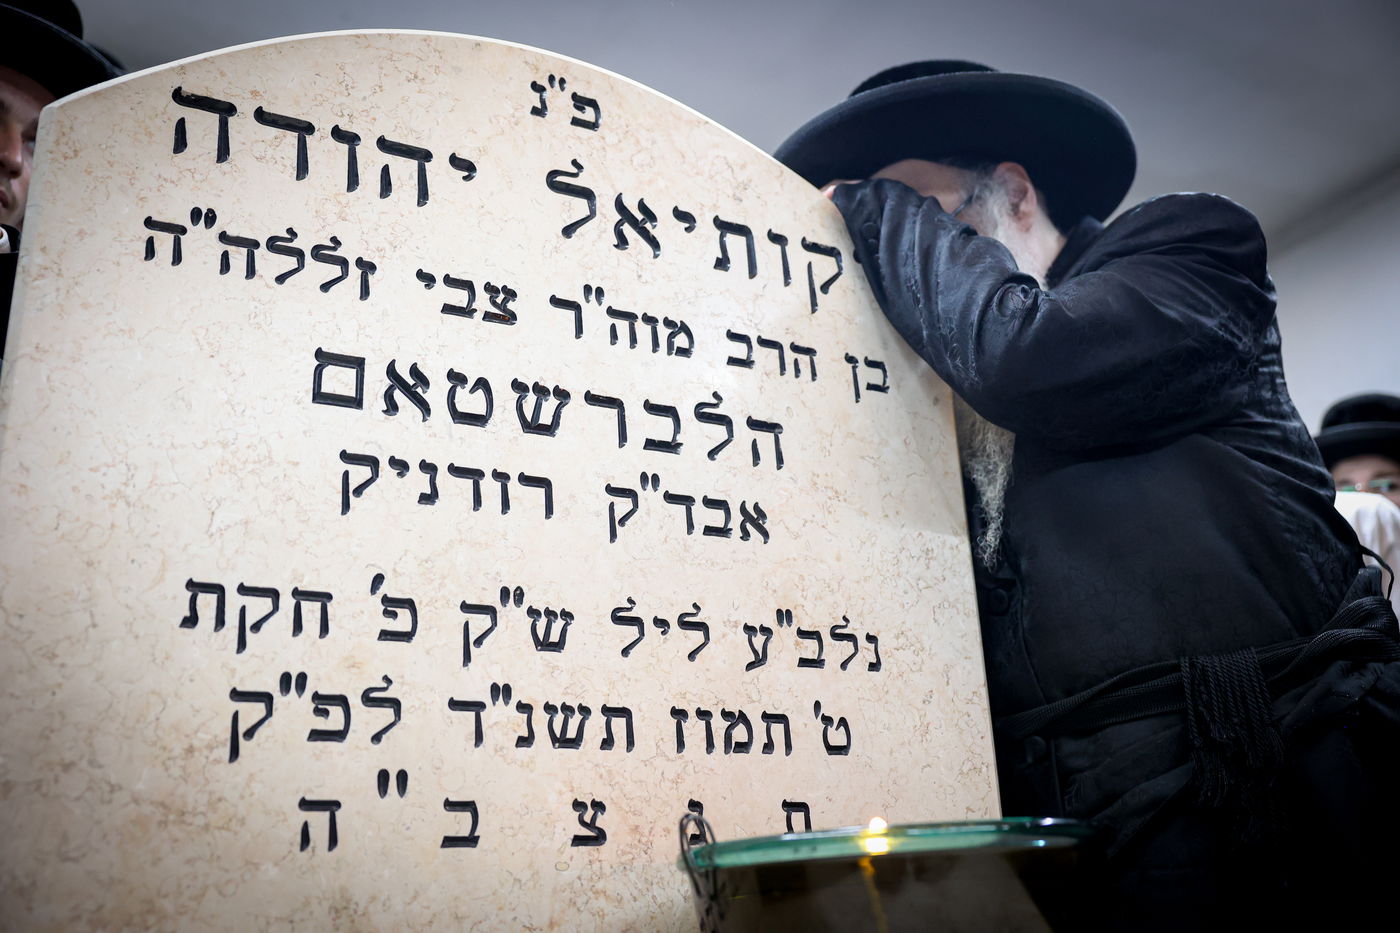 פ"נ
יקותיאל יהודה
בן הרב מוה"ר צבי זללה"ה
הלברשטאם
אבד"ק רודניק
נלב"ע ליל ש"ק פ' חקת
ט' תמוז תשנ"ד לפ"ק
ת נ צ ב " ה